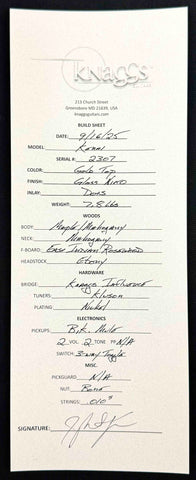 KNAGGS
213 Church Street
Greensboro MD 21639, USA
knaggsguitars.com
BUILD SHEET
DATE: 9/16/25
MODEL: Kenai
SERIAL #: 2307
COLOR: Gold Top
FINISH: Gloss Nitro
INLAY: Dots
WEIGHT: 7.8 lbs
WOODS
BODY: Maple/Mahogany
NECK: Mahogany
F-BOARD: East Indian Rosewood
HEADSTOCK: Ebony
HARDWARE
BRIDGE: Knaggs Influence
TUNERS: Kluson
PLATING: Nickel
ELECTRONICS
PICKUPS: B.K. Mule
2 VOL. 2 TONE PP N/A
SWITCH: 3-way Toggle
MISC.
PICKGUARD: N/A
NUT: Bone
STRINGS: .010"
SIGNATURE: